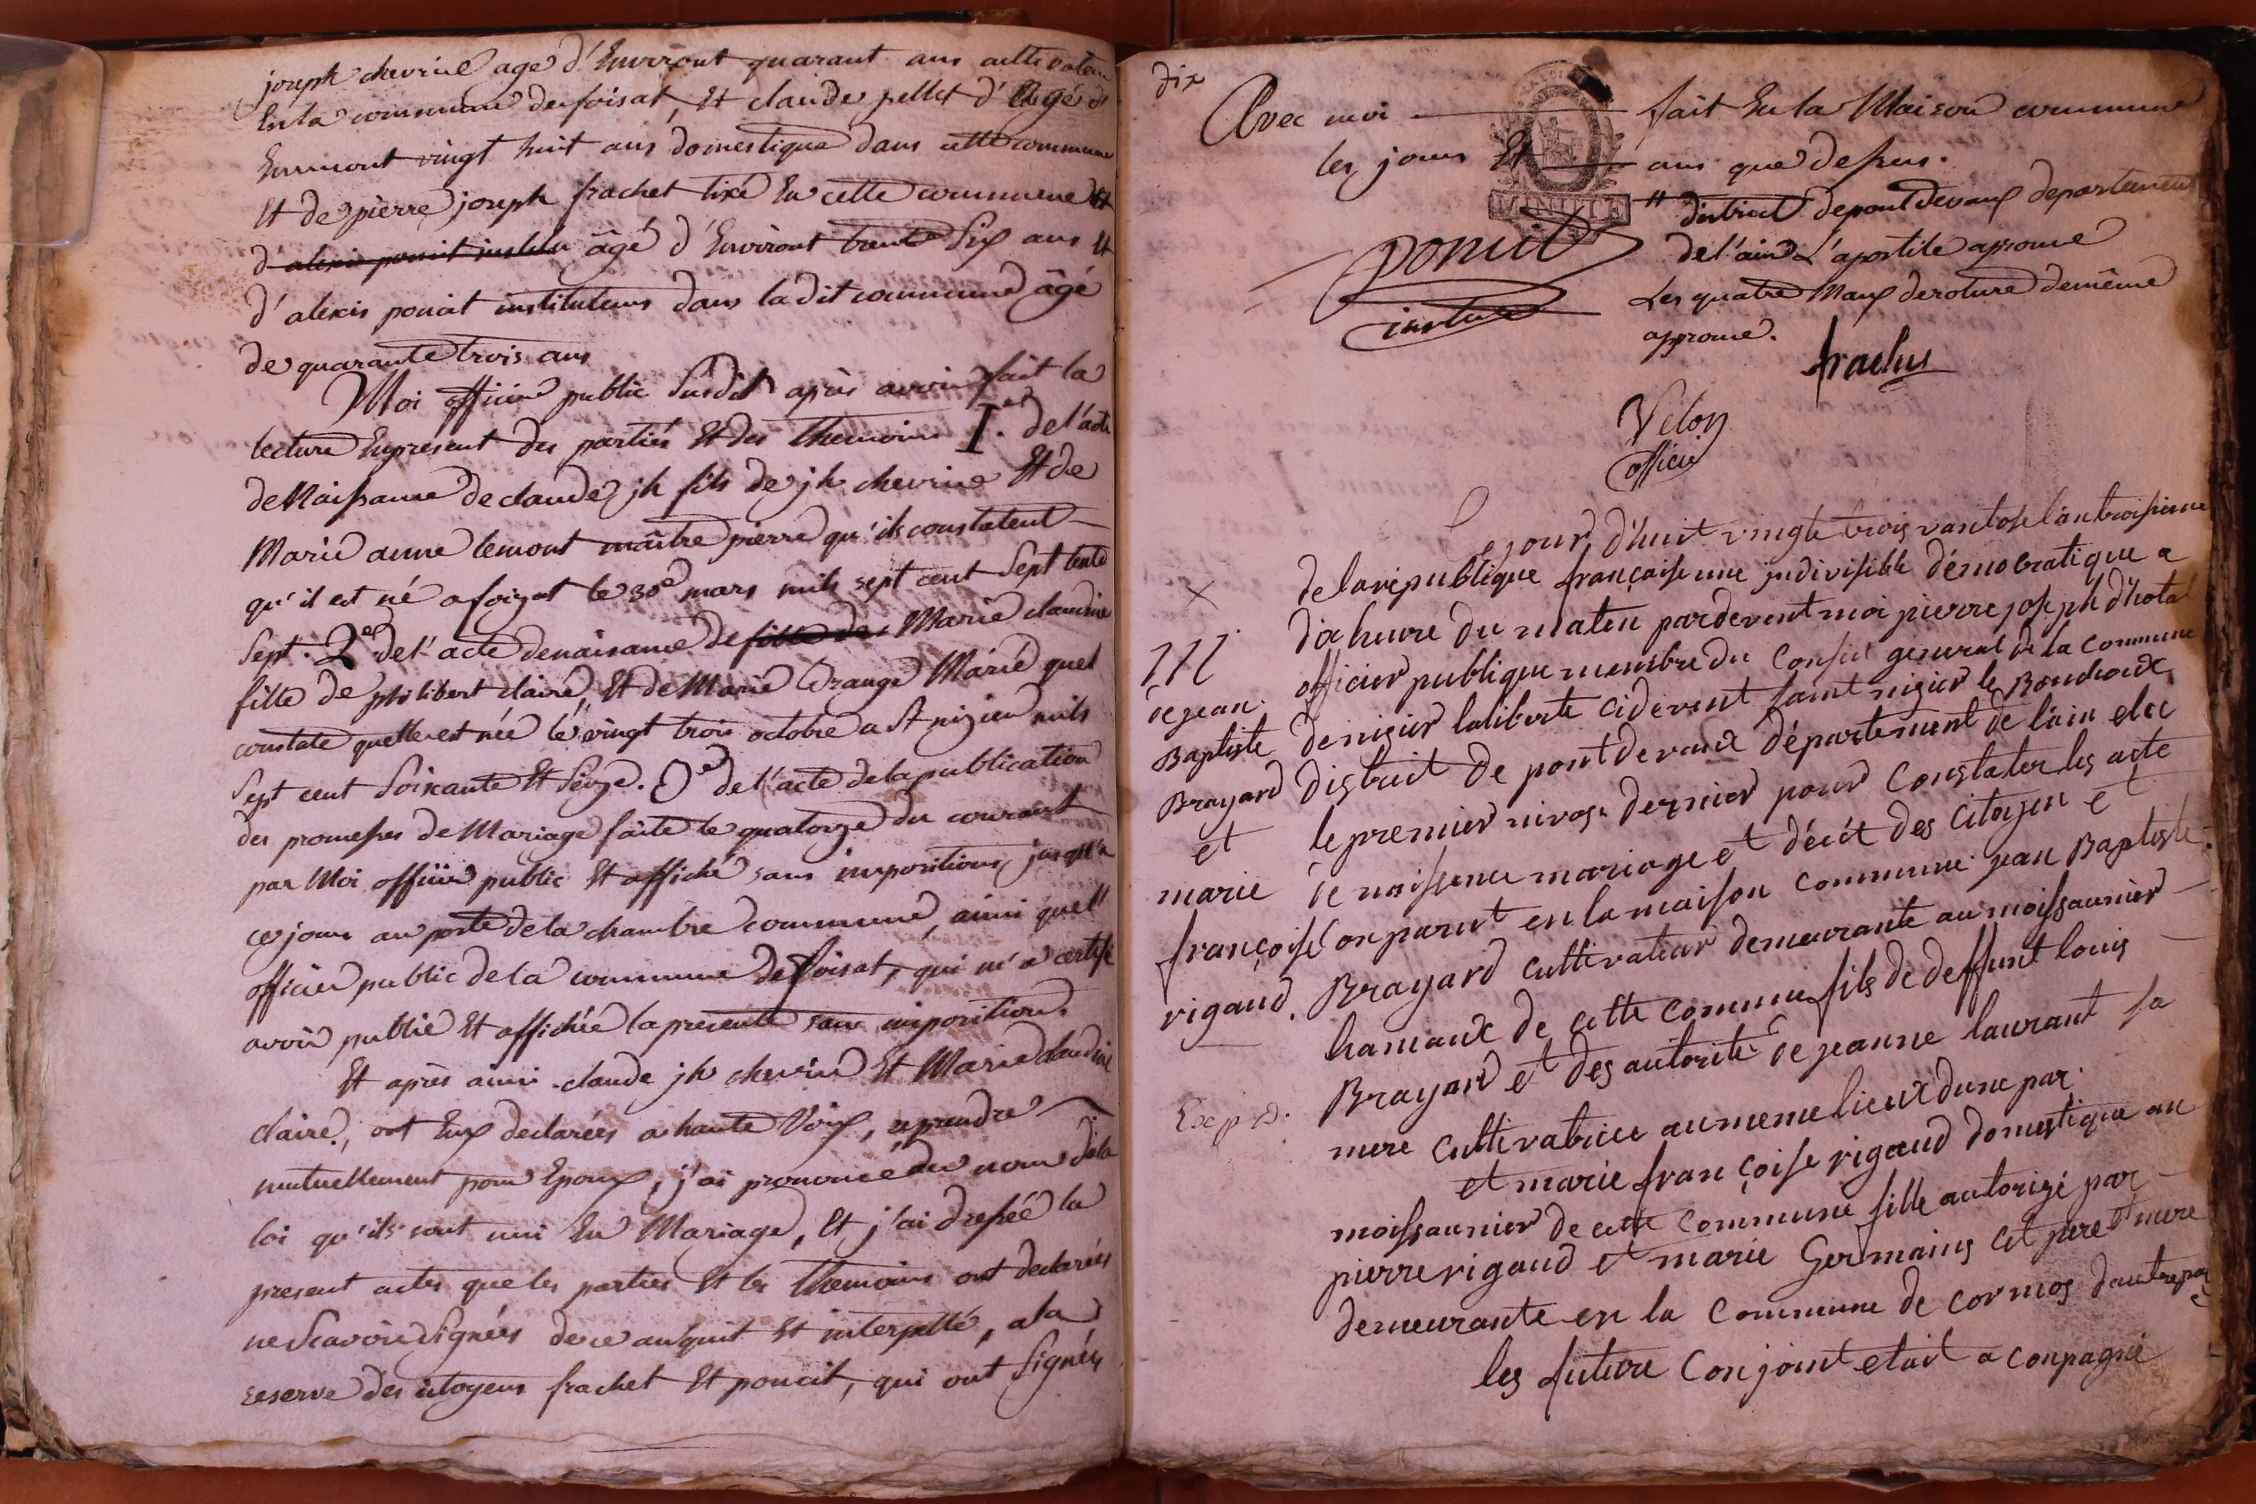 joseph chevriul agé d'Environt quarant ans cultivateur
En la commune de foisat, Et claude pellet d'Elagé d'
Environt vingt huit ans domestique dans cette commune
Et de pierre joseph frachet fixé En cette commune Et
d'alexis ponsit institu âgé d'Environt trente Six ans Et
d'alexis poncit instituteurs dans ladit commune âgé
de quarante trois ans
Moi officier public Susdit après avoir fait la
lecture En present des partiés Et des Themoins I.er de l'acte
de Naissanse de claude jh fils de jh chevrine Et de
Marie anne lemont maître pierre qu'ils constatent
qu'il est né a foizat le 30e mars mils sept cent Sept tente
Sept. 2e de l'acte denaisance de fille de Marie claudine
fille de philibert claire, Et de Marie Grange Marié quel
constate quelle est née le vingt trois octobre a St nizier mils
Sept cent Soixante Et Seize. 3e de l'acte de la publication
des promesses de Mariage faite le quatorze du courrant
par Moi officier public Et affiché sans impositions jusqu'a
ce jour au porte de la chambre commune, ainsi quel'
officier public de la commune de foisat, qui m'a certifé
avoir publié Et affichée la presente sans imposition.
Et après ainsi claude jh chevrin Et Marie claudine
claire, ont Eux declarées a haute Voix, se prendre
mutuellement pour Epoux, j'ai prononcé au nom de la
loi qu'ils sont uni En Mariage, Et j'ai dressée la
present actes que les parties Et les Themoins ont declarées
ne Scavoir Signées de ce enquit Et interpellé, a la
reserve des citoyens frachet Et poncit, qui ont Signées
dix
Avec moi fait En la Maison commune
les jours Et ans que dessus.
" district depont Devaux departement
de l'ain L'apostile approuve
Les quatre Maux deroture demême
approuve.
poncit
instu
frachet
Velon
officier
Ce jour d'huit vingte trois vantose l'an troisieme
de la république française une indivisible démocratique a
dix heure du maten pardevent moi pierre joseph d'hotal
officier publique membre du conseil general de la commune
de nizier laliberte cidevent saint nizier le Bouchoux
district de pont de vaux département de l'ain elu
le premier nivose dernier pour constater les acte
de naissence mariage et décét des citoyen et
Conparut en la maison commune jean Baptiste
Brayard cultivateur demeurante au moissaunier
hamaux de cette commune fils de deffunt louis
Brayard et des autorité de jeanne laurant sa
mere cultivatrice au meme lieux dune par
et marie françoise rigaud domestique au
moissaunier de cette commune fille autorizé par
pierre rigaud et marie Germains cet pere et mere
demeurante en la commune de cormos dautre par
les future conjoint etait aconpagné
×
III
de jean
Baptiste
Brayard
et
marie
françoise
rigaud.
Exp d.